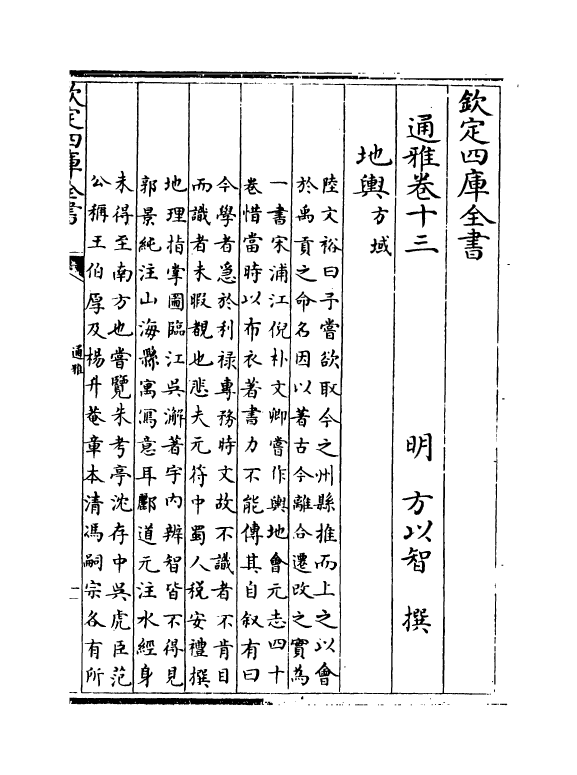 欽定四庫全書
通雅卷十三
明 方以智 撰
地輿方域
陸文裕曰予嘗欲取今之州縣推而上之以會
於禹貢之命名因以著古今離合遷改之實為
一書宋浦江倪朴文卿嘗作輿地會元志四十
卷惜當時以布衣著書力不能傳其自叙有曰
今學者急於利禄專務時文故不識者不肯目
而識者未暇覩也悲夫元符中蜀人税安禮撰
地理指掌圖臨江吳澥著宇内辨智皆不得見
郭景純注山海縣寓寫意耳酈道元注水經身
未得至南方也嘗覽朱考亭沈存中吳虎臣范
公稱王伯厚及楊升菴章本清馮嗣宗各有所
欽定四庫全書
通雅
一